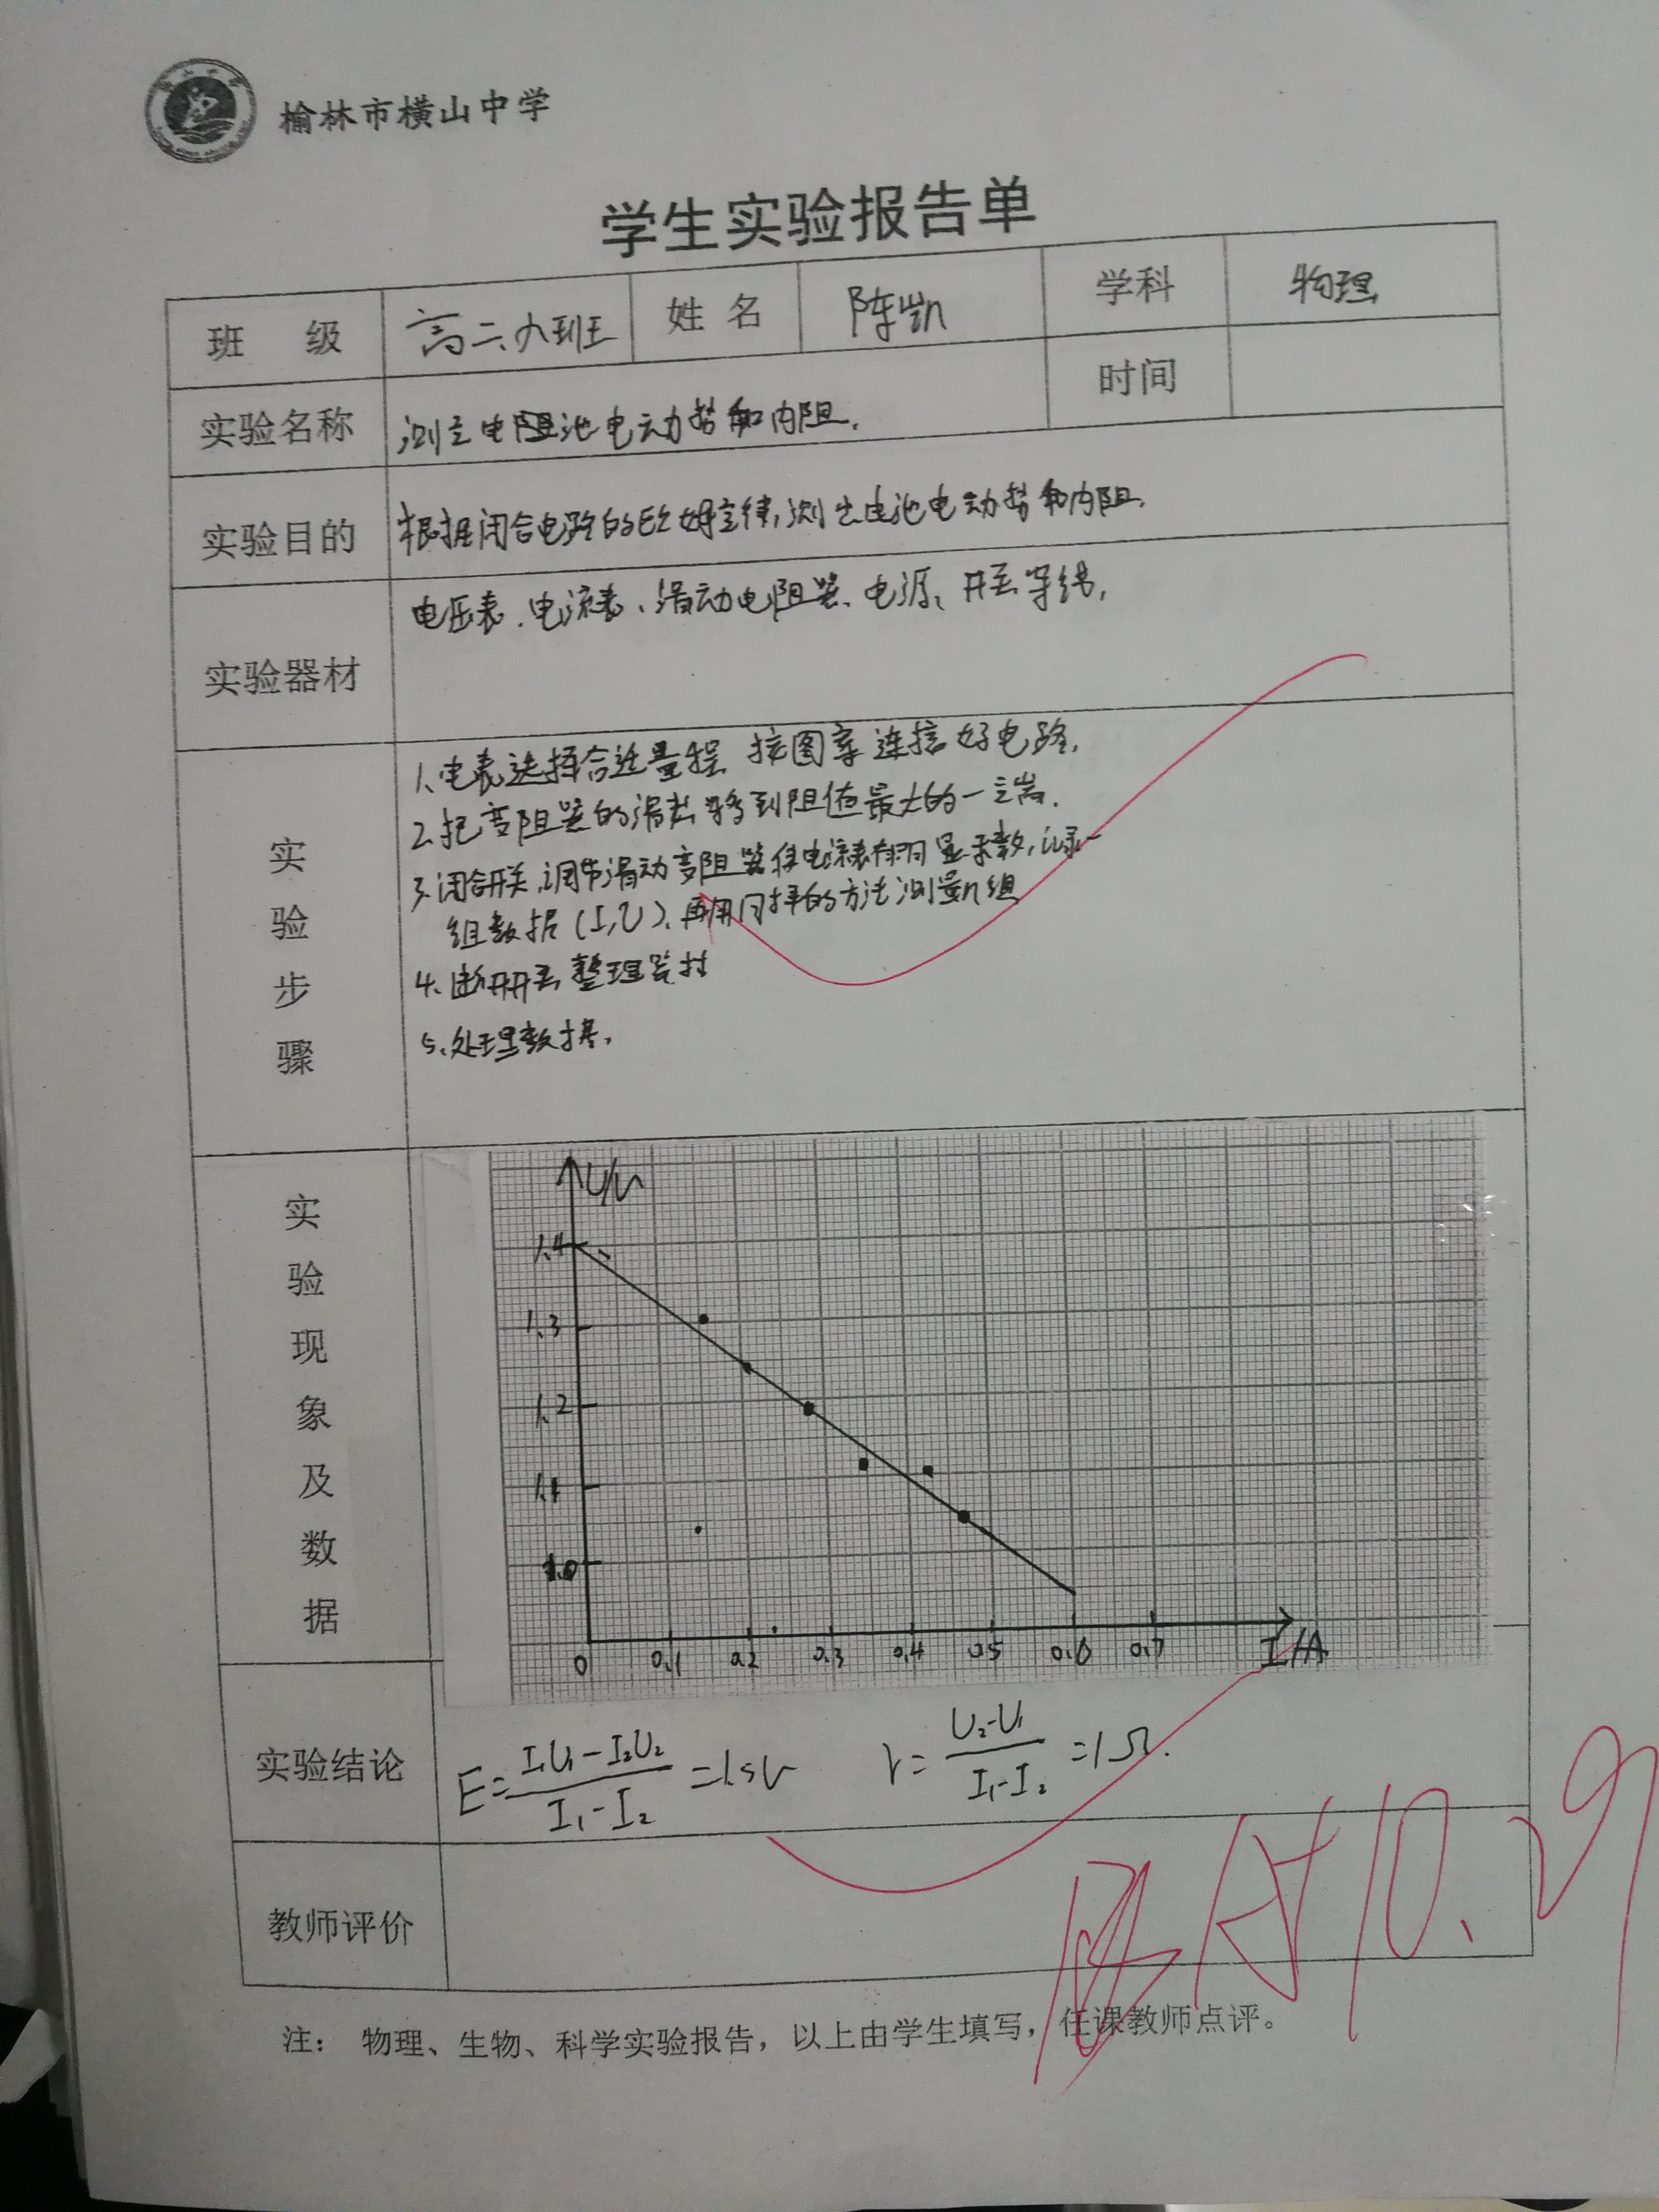 榆林市横山中学
学生实验报告单
班 级 高二九班 姓 名 陈凯 学科 物理
实验名称 测定电阻池电动势和内阻. 时间
实验目的 根据闭合电路的欧姆定律,测定电池电动势和内阻.
实验器材 电压表、电流表、滑动电阻器、电源、开关导线,
实验步骤
1、电表选择合适量程 按图 连接好电路.
2.把变阻器的滑片移到阻值最大的一端.
3、闭合开关,调节滑动变阻器使电流表有明显示数,记录一
组数据(I,U)、再用同样的方法测量几组
4、断开开关 整理器材
5、处理数据,
实验现象及数据
U/V
1.4
1.3
1.2
1.1
1.0
0 0.1 0.2 0.3 0.4 0.5 0.6 0.7 I/A
实验结论 E=(I₁U₁-I₂U₂)/(I₁-I₂)=1.5V r=(U₂-U₁)/(I₁-I₂)=1Ω.
教师评价
10.29
注: 物理、生物、科学实验报告,以上由学生填写,任课教师点评。